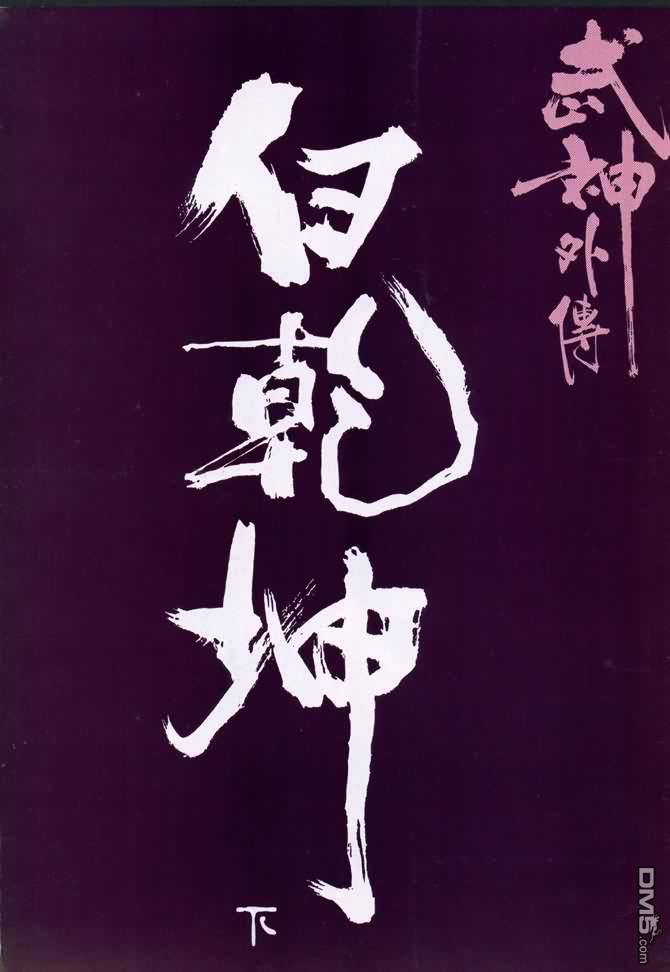 武神外傳
白乾坤
下
DM5.com